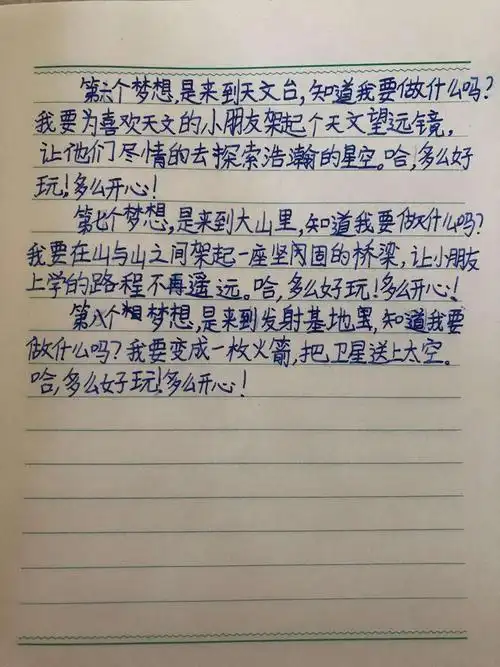 第六个梦想,是来到天文台,知道我要做什么吗?
我要为喜欢天文的小朋友架起个天文望远镜,
让他们尽情的去探索浩瀚的星空。哈,多么好
玩!多么开心!
第七个梦想,是来到大山里,知道我要做什么吗?
我要在山与山之间架起一座坚闵固的桥梁,让小朋友
上学的路程不再遥远。哈,多么好玩!多么开心!
第八个梦想,是来到发射基地里,知道我要
做什么吗?我要变成一枚火箭,把卫星送上太空。
哈,多么好玩!多么开心!